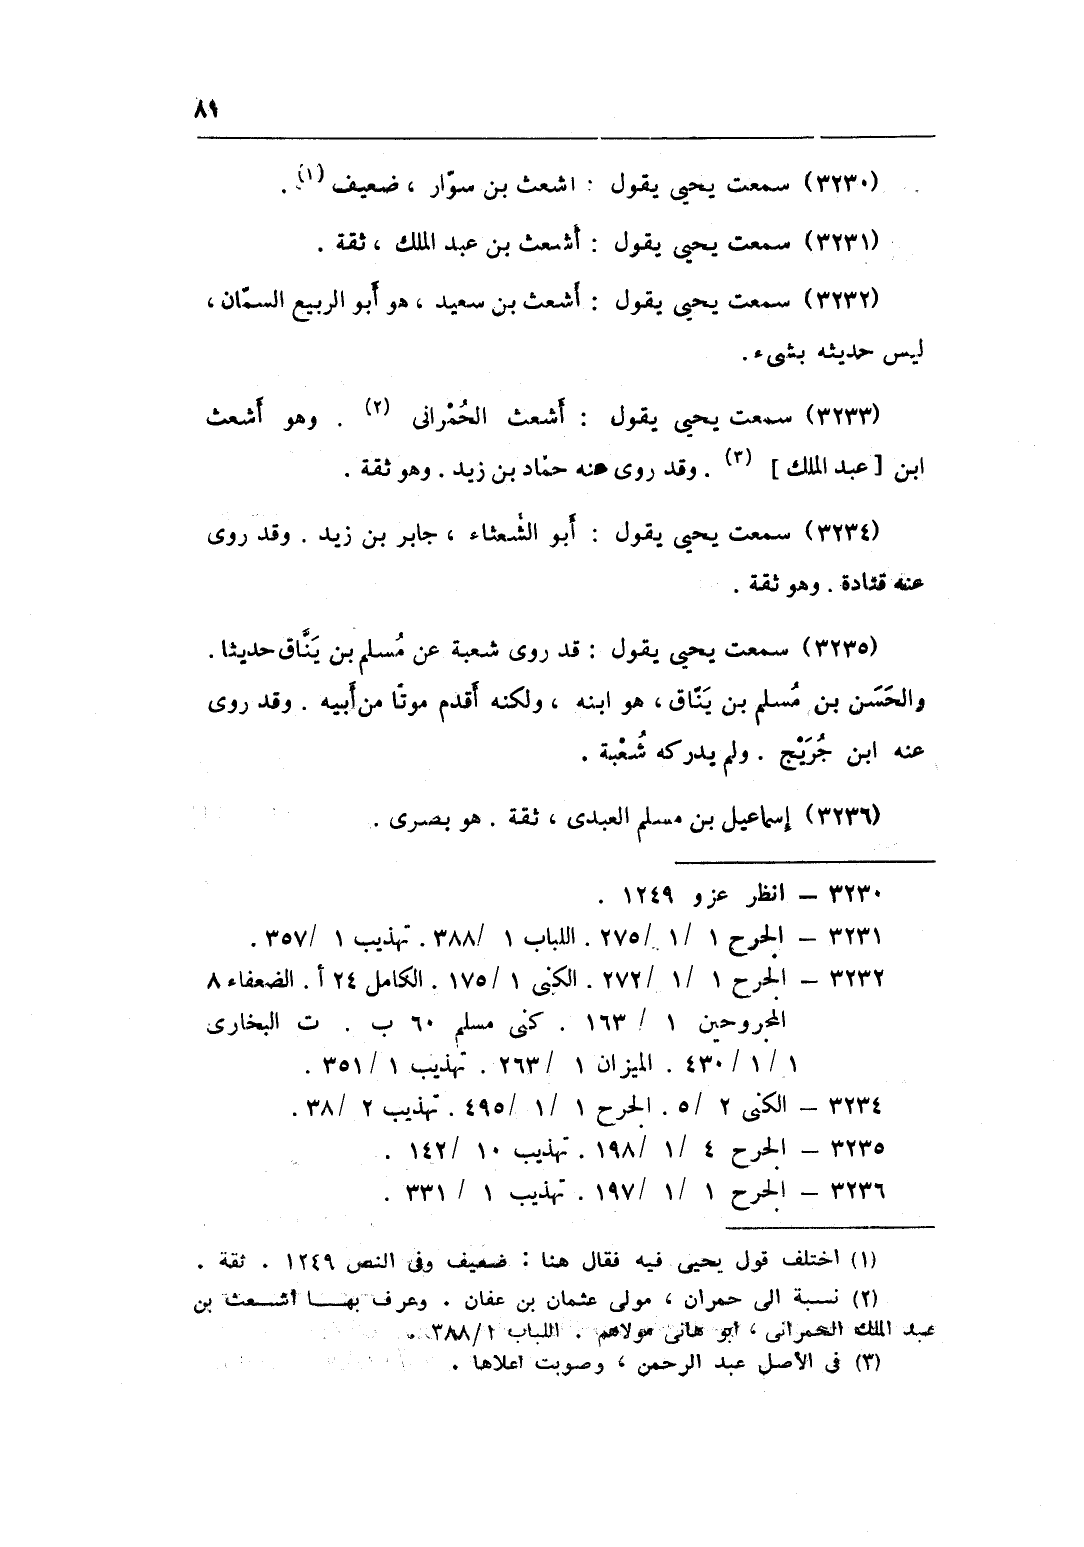 ٨٩
(٣٢٣٠) سمعت يحيى يقول : اشعث بن سوّار ، ضعيف (١) .
(٣٢٣١) سمعت يحيى يقول : أشعث بن عبد الملك ، ثقة .
(٣٢٣٢) سمعت يحيى يقول : أشعث بن سعيد ، هو أبو الربيع السمّان ،
ليس حديثه بشىء .
(٣٢٣٣) سمعت يحيى يقول : أشعث الحُمْرانى (٢) . وهو أشعث
ابن [ عبد الملك ] (٣) . وقد روى عنه حمّاد بن زيد . وهو ثقة .
(٣٢٣٤) سمعت يحيى يقول : أبو الشَعثاء ، جابر بن زيد . وقد روى
عنه قتادة . وهو ثقة .
(٣٢٣٥) سمعت يحيى يقول : قد روى شعبة عن مُسلم بن يَنَّاق حديثا .
والحَسَن بن مُسلم بن يَنّاق ، هو ابنه ، ولكنه أقدم موتًا من أبيه . وقد روى
عنه ابن جُرَيْج . ولم يدركه شُعْبة .
(٣٢٣٦) إسماعيل بن مسلم العبدى ، ثقة . هو بصرى .
٣٢٣٠ – انظر عزو ١٢٤٩ .
٣٢٣١ – الجرح ١ /١ /٢٧٥ . اللباب ١ /٣٨٨ . تهذيب ١ /٣٥٧ .
٣٢٣٢ – الجرح ١ /١ /٢٧٢ . الكنى ١ /١٧٥ . الكامل ٢٤ أ . الضعفاء ٨
المجروحين ١ / ١٦٣ . كنى مسلم ٦٠ ب . ت البخارى
١ /١ /٤٣٠ . الميزان ١ /٢٦٣ . تهذيب ١ /٣٥١ .
٣٢٣٤ – الكنى ٢ /٥ . الجرح ١ /١ /٤٩٥ . تهذيب ٢ /٣٨ .
٣٢٣٥ – الجرح ٤ /١ /١٩٨ . تهذيب ١٠ /١٤٢ .
٣٢٣٦ – الجرح ١ /١ /١٩٧ . تهذيب ١ / ٣٣١ .
(١) اختلف قول يحيى فيه فقال هنا : ضعيف وفى النص ١٢٤٩ . ثقة .
(٢) نسبة الى حمران ، مولى عثمان بن عفان . وعرف بهـا أشعث بن
عبد الملك الحمرانى ، ابو هانى مولاهم . اللباب ٣٨٨/١ .
(٣) فى الأصل عبد الرحمن ، وصوبت اعلاها .